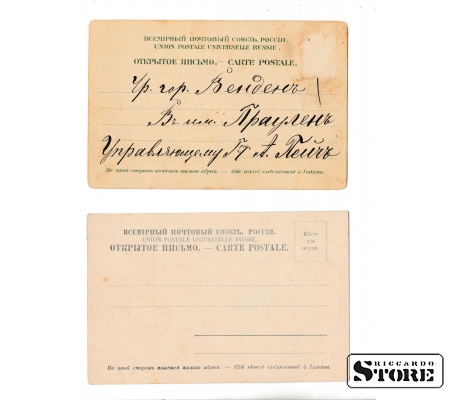 ВСЕМІРНЫЙ ПОЧТОВЫЙ СОЮЗЪ. РОССІЯ.
UNION POSTALE UNIVERSELLE RUSSIE.
ОТКРЫТОЕ ПИСЬМО. — CARTE POSTALE.
Чр. гор. Венденъ
Въ им. Прауленъ
Управляющему Гну А. Пейчъ
На этой сторонѣ пишется только адресъ. — Côté réservé exclusivement à l'adresse.
ВСЕМІРНЫЙ ПОЧТОВЫЙ СОЮЗЪ. РОССІЯ.
UNION POSTALE UNIVERSELLE RUSSIE.
ОТКРЫТОЕ ПИСЬМО. — CARTE POSTALE.
Мѣсто
для
марки.
На этой сторонѣ пишется только адресъ. — Côté réservé exclusivement à l'adresse.
RICCARDO
STORE